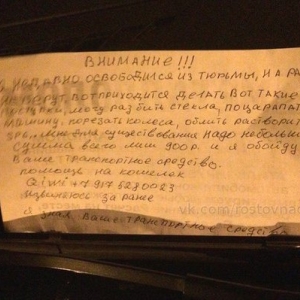 ВНИМАНИЕ!!!
НЕДАВНО ОСВОБОДИЛСЯ ИЗ ТЮРЬМЫ, НА РА
НЕ БЕРУТ ВОТ ПРИХОДИТСЯ ДЕЛАТЬ ВОТ ТАКИЕ
МОГУ РАЗБИТЬ СТЕКЛА, ПОЦАРАПАТ
МАШИНУ, ПОРЕЗАТЬ КОЛЕСА, ОБЛИТЬ РАСТВОРИТ
СУЩЕСТВОВАНИЯ НАДО НЕБОЛЬШ
СУММА ВСЕГО ЛИШ 900р. и я обойду
Ваше транспортное средство.
помощь на кошелек
Qiwi +7917
извиняюсь за ранее
я знаю Ваше транспортное средство
vk.com/rostovna